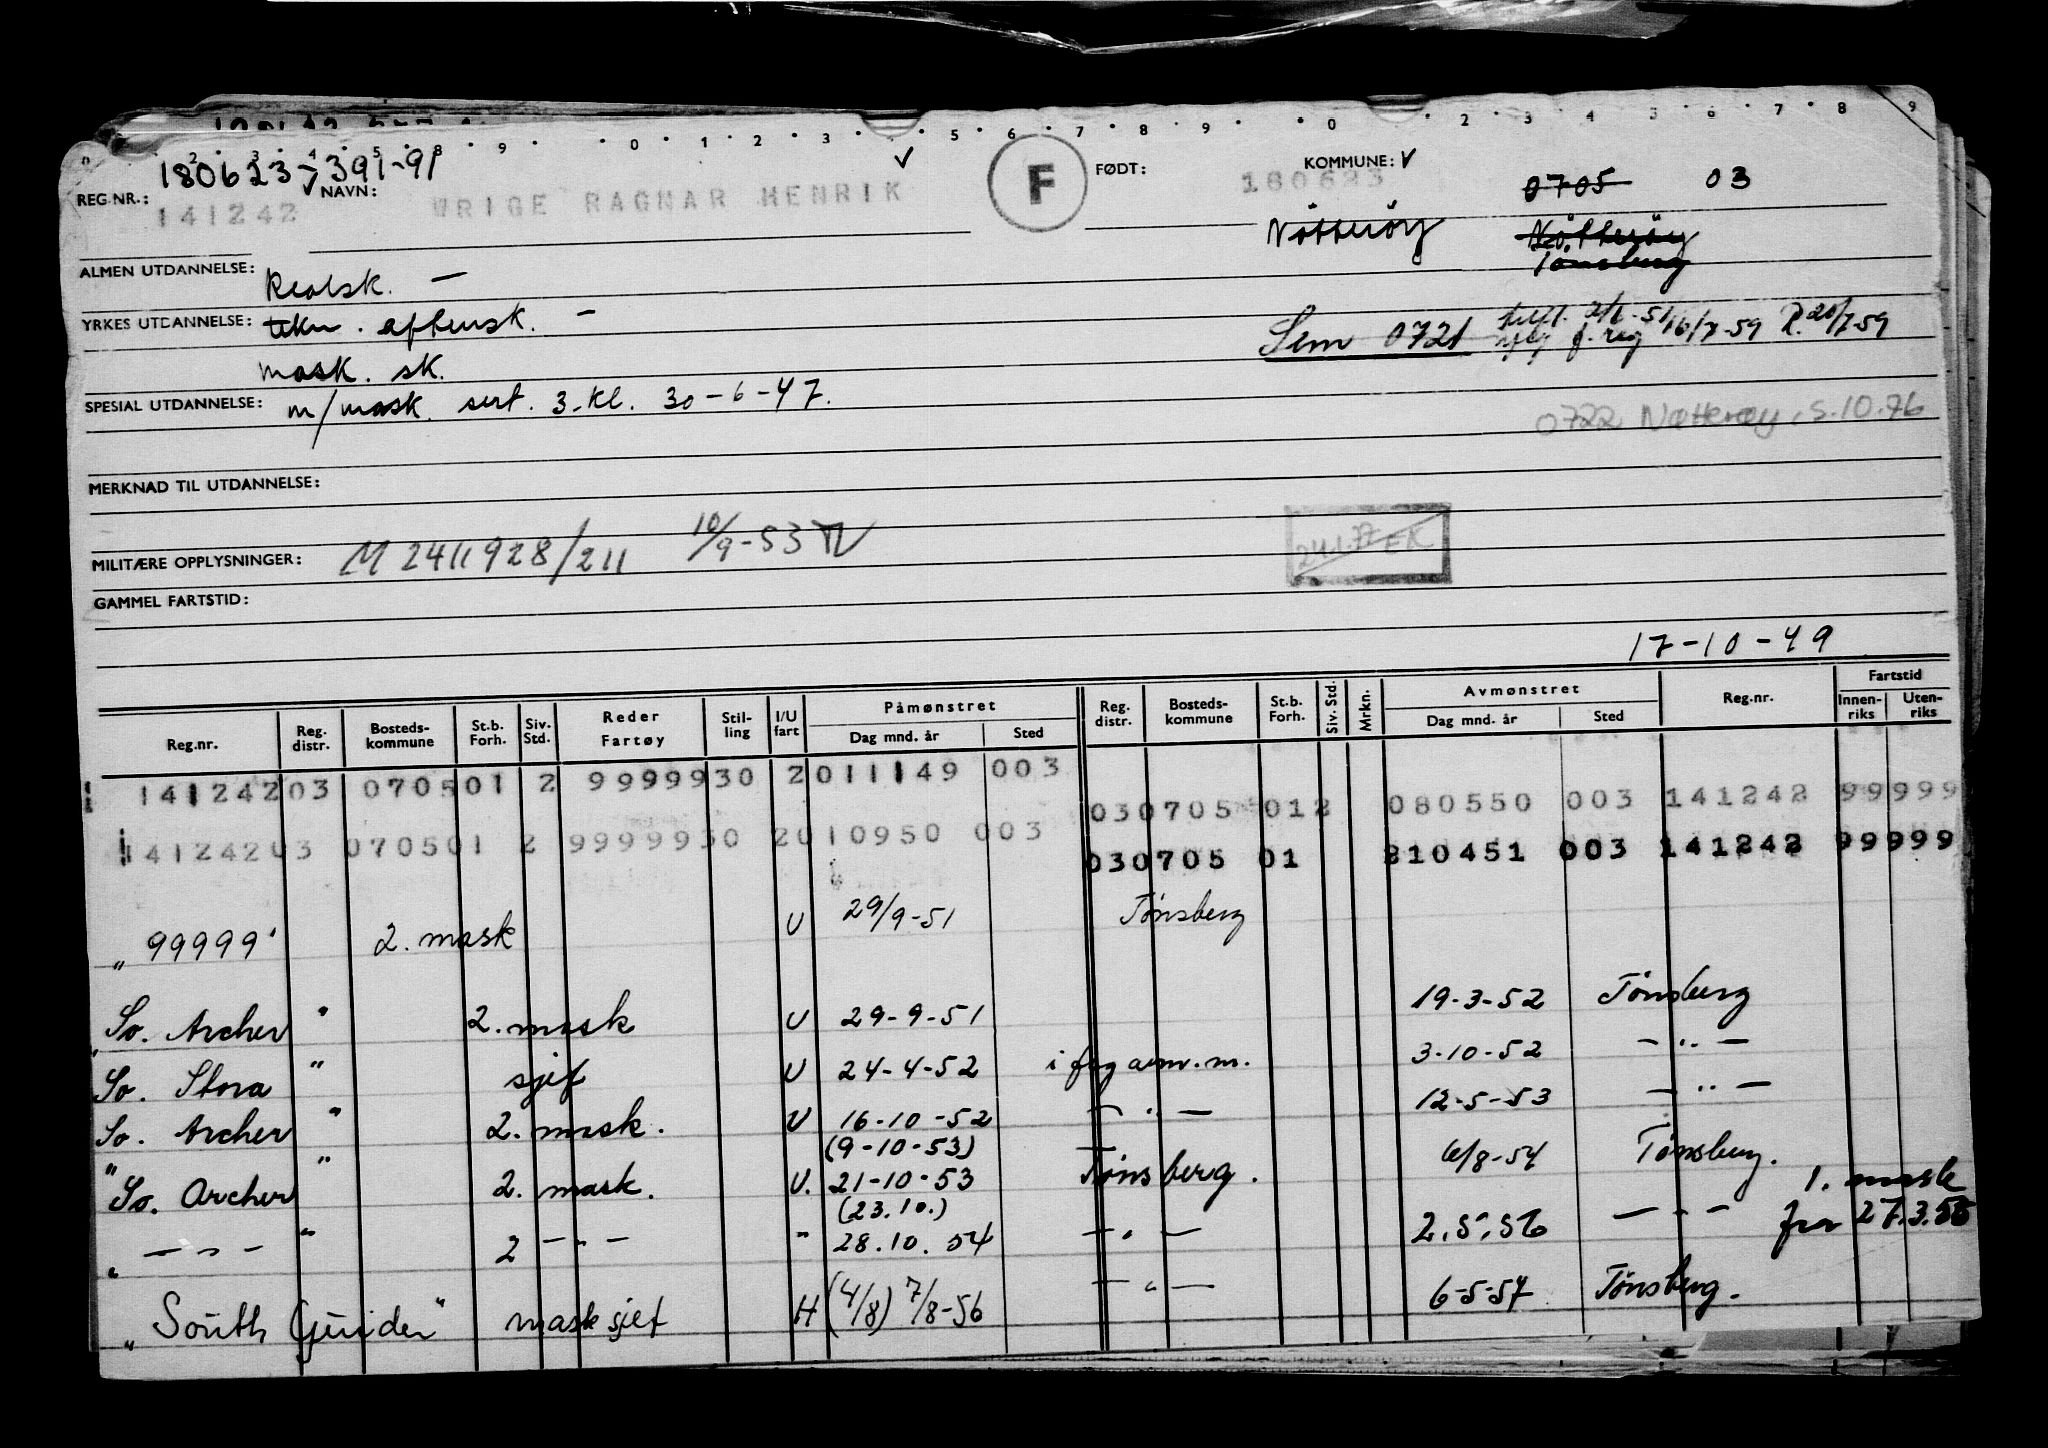 180623-391-91
REG.NR.: 141242 NAVN: WRIGE RAGNAR HENRIK F FØDT: 180623 KOMMUNE: 0705 03
Nötteröy Nötteröy
Tönsberg
ALMEN UTDANNELSE: Realsk. —
YRKES UTDANNELSE: tekn. aftensk. —
Sem 0721 16/7-59 R. 20/7-59
mask. sk.
SPESIAL UTDANNELSE: m/mask. sert. 3. kl. 30-6-47.
0722 Nøtterøy, 5.10.76
MERKNAD TIL UTDANNELSE:
MILITÆRE OPPLYSNINGER: M 2411928/211 10/9-53
24.1.77 EK
GAMMEL FARTSTID:
17-10-49
Reg.nr. Reg. distr. Bosteds-kommune St.b. Forh. Siv. Std. Reder Fartøy Stil-ling I/U fart Påmønstret Dag mnd. år Sted Reg. distr. Bosteds-kommune St.b. Forh. Siv. Std. Mrkn. Avmønstret Dag mnd. år Sted Reg.nr. Fartstid Innen-riks Uten-riks
141242 03 0705 01 2 9999930 2 011149 003 03 0705 01 2 080550 003 141242 99999
141242 03 0705 01 2 9999930 2 010950 003 03 0705 01 210451 003 141242 99999
„ 99999" 2. mask U 29/9-51 Tönsberg
„ So. Archer " 2. mask U 29-9-51 19-3-52 Tönsberg
„ So. Stora " sjef U 24-4-52 i flg avm. m. 3-10-52 — " —
So. Archer " 2. mask. U 16-10-52 — " — 12-5-53 — " —
(9-10-53)
" So. Archer " 2. mask. U. 21-10-53 Tönsberg. 6/8-54 Tönsberg.
(23.10.) 1. mask
„ — " — " 2 — " — " 28.10.54 — " — 2.5.56 — " — fra 27.3.56
„ South Guider " mask sjef H (4/8) 7/8-56 — " — 6-5-57 Tönsberg.